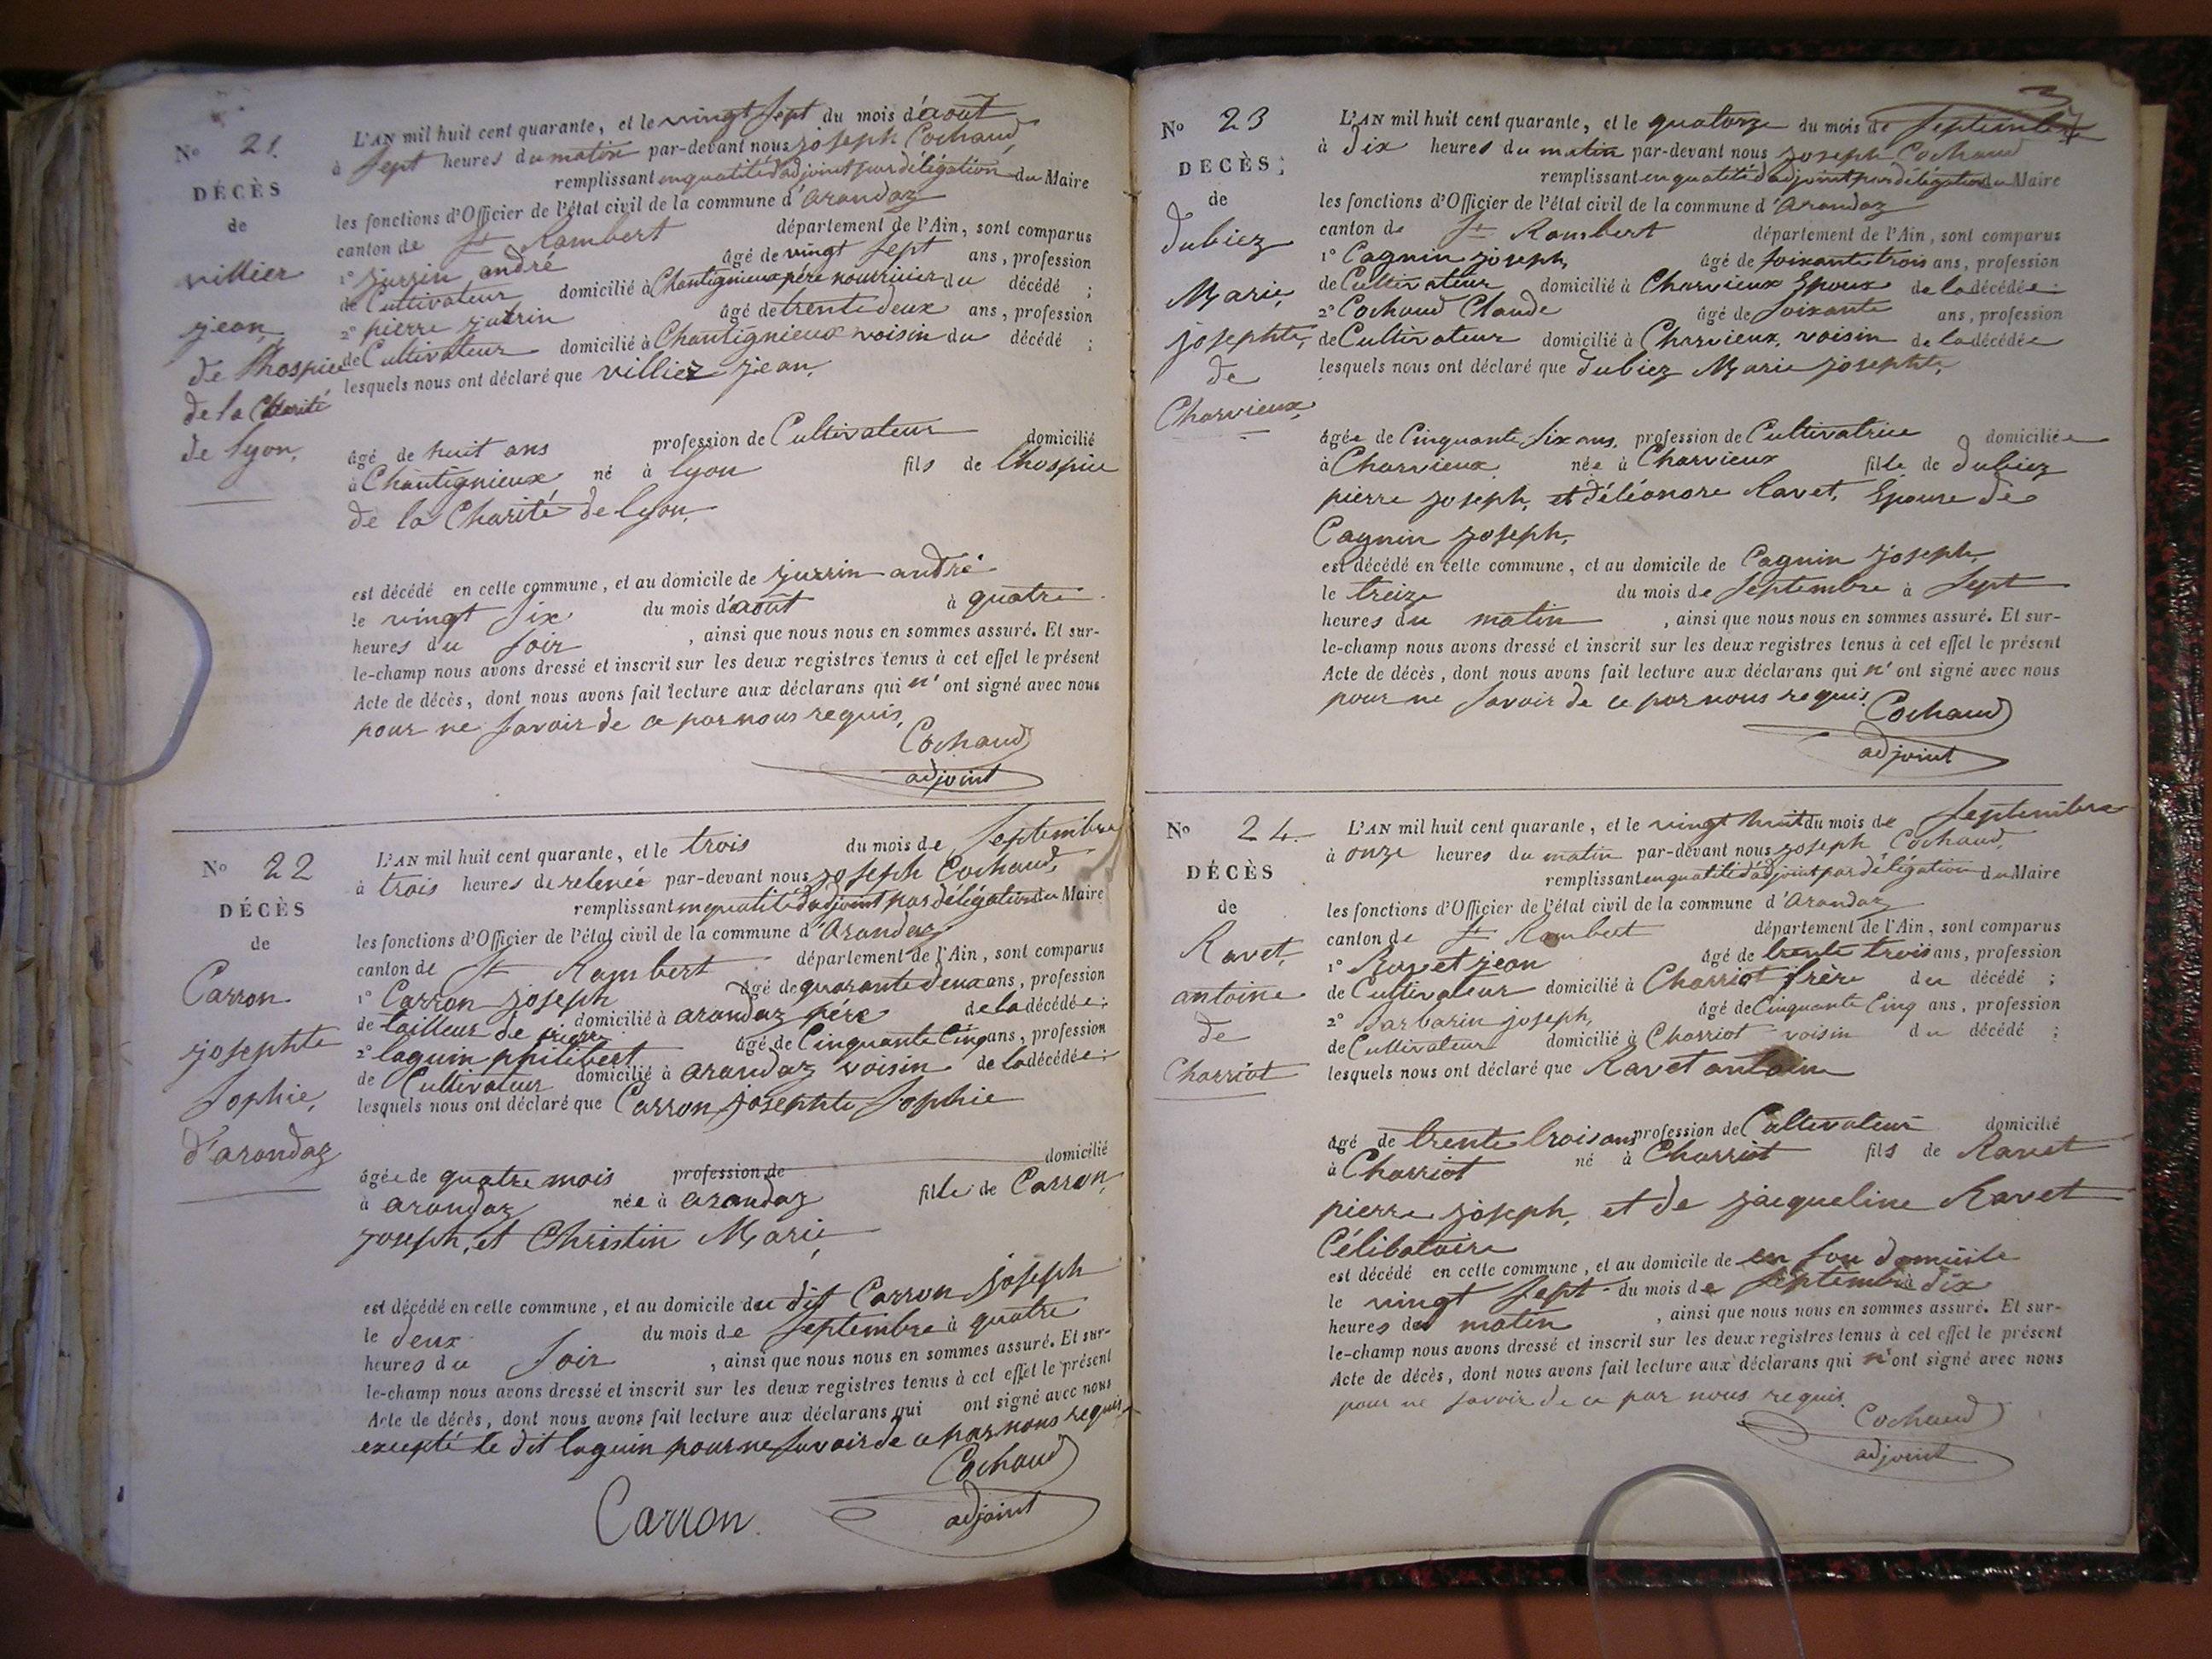 N° 21.
DÉCÈS
de
villier
jean,
de l'hospice
de la Charité
de lyon,
L'AN mil huit cent quarante, et le vingt sept du mois d'août
à sept heures du matin par-devant nous joseph Cochaud,
remplissant en qualité d'adjoint par délégation du Maire
les fonctions d'Officier de l'état civil de la commune d'arandaz
canton de St Rambert département de l'Ain, sont comparus
1° jurrin andré âgé de vingt sept ans, profession
de Cultivateur domicilié à Chantignieux père nourricier du décédé ;
2° pierre jurrin âgé de trente deux ans, profession
de Cultivateur domicilié à Chantignieux voisin du décédé ;
lesquels nous ont déclaré que villiez jean,
âgé de huit ans profession de Cultivateur domicilié
à Chantignieux né à lyon fils de l'hospice
de la Charité de lyon,
est décédé en cette commune, et au domicile de jurrin andré
le vingt six du mois d'août à quatre
heures du soir, ainsi que nous nous en sommes assuré. Et sur-
le-champ nous avons dressé et inscrit sur les deux registres tenus à cet effet le présent
Acte de décès, dont nous avons fait lecture aux déclarans qui n'ont signé avec nous
pour ne savoir de ce par nous requis,
Cochaud
adjoint
N° 22
DÉCÈS
de
Carron
josephte
sophie,
d'arandaz
L'AN mil huit cent quarante, et le trois du mois de septembre
à trois heures de relevée par-devant nous joseph Cochaud,
remplissant en qualité d'adjoint par délégation du Maire
les fonctions d'Officier de l'état civil de la commune d'Arandaz
canton de St Rambert département de l'Ain, sont comparus
1° Carron joseph âgé de quarante deux ans, profession
de tailleur de pierre domicilié à arandaz père de la décédée ;
2° laguin philibert âgé de Cinquante Cinq ans, profession
de Cultivateur domicilié à arandaz voisin de la décédée ;
lesquels nous ont déclaré que Carron josephte sophie
âgée de quatre mois profession de domicilié
à arandaz née à arandaz fille de Carron,
joseph, et Christin Marie,
est décédé en cette commune, et au domicile du dit Carron joseph
le deux du mois de septembre à quatre
heures du soir, ainsi que nous nous en sommes assuré. Et sur-
le-champ nous avons dressé et inscrit sur les deux registres tenus à cet effet le présent
Acte de décès, dont nous avons fait lecture aux déclarans qui ont signé avec nous
excepté le dit laguin pour ne savoir de ce par nous requis
Cochaud
adjoint
Carron.
N° 23
DECÈS
de
Dubiez
Marie
josephte,
de
Charvieux,
L'AN mil huit cent quarante, et le quatorze du mois de septembre
à dix heures du matin par-devant nous joseph Cochaud
remplissant en qualité d'adjoint par délégation du Maire
les fonctions d'Officier de l'état civil de la commune d'Arandaz
canton de St Rambert département de l'Ain, sont comparus
1° Cagnin joseph, âgé de soixante trois ans, profession
de Cultivateur domicilié à Charvieux Epoux de la décédée ;
2° Cochaud Claude âgé de soixante ans, profession
de Cultivateur domicilié à Charvieux, voisin de la décédée
lesquels nous ont déclaré que Dubiez Marie josephte,
âgée de Cinquante six ans, profession de Cultivatrice domiciliée
à Charvieux née à Charvieux fille de Dubiez
pierre joseph, et d'éléonore Ravet, Epouse de
Cagnin joseph,
est décédé en cette commune, et au domicile de Cagnin joseph,
le treize du mois de septembre à sept
heures du matin, ainsi que nous nous en sommes assuré. Et sur-
le-champ nous avons dressé et inscrit sur les deux registres tenus à cet effet le présent
Acte de décès, dont nous avons fait lecture aux déclarans qui n'ont signé avec nous
pour ne savoir de ce par nous requis,
Cochaud
adjoint
N° 24
DÉCÈS
de
Ravet,
antoine
de
Charriot
L'AN mil huit cent quarante, et le vingt huit du mois de septembre
à onze heures du matin par-devant nous joseph Cochaud,
remplissant en qualité d'adjoint par délégation du Maire
les fonctions d'Officier de l'état civil de la commune d'Arandaz
canton de St Rambert département de l'Ain, sont comparus
1° Ravet jean âgé de trente trois ans, profession
de Cultivateur domicilié à Charriot frère du décédé ;
2° Barbarin joseph, âgé de Cinquante Cinq ans, profession
de Cultivateur domicilié à Charriot voisin du décédé ;
lesquels nous ont déclaré que Ravet antoine
âgé de trente trois ans profession de Cultivateur domicilié
à Charriot né à Charriot fils de Ravet
pierre joseph, et de jacqueline Ravet
Célibataire
est décédé en cette commune, et au domicile de en son domicile
le vingt sept du mois de septembre à dix
heures du matin, ainsi que nous nous en sommes assuré. Et sur-
le-champ nous avons dressé et inscrit sur les deux registres tenus à cet effet le présent
Acte de décès, dont nous avons fait lecture aux déclarans qui n'ont signé avec nous
pour ne savoir de ce par nous requis
Cochaud
adjoint